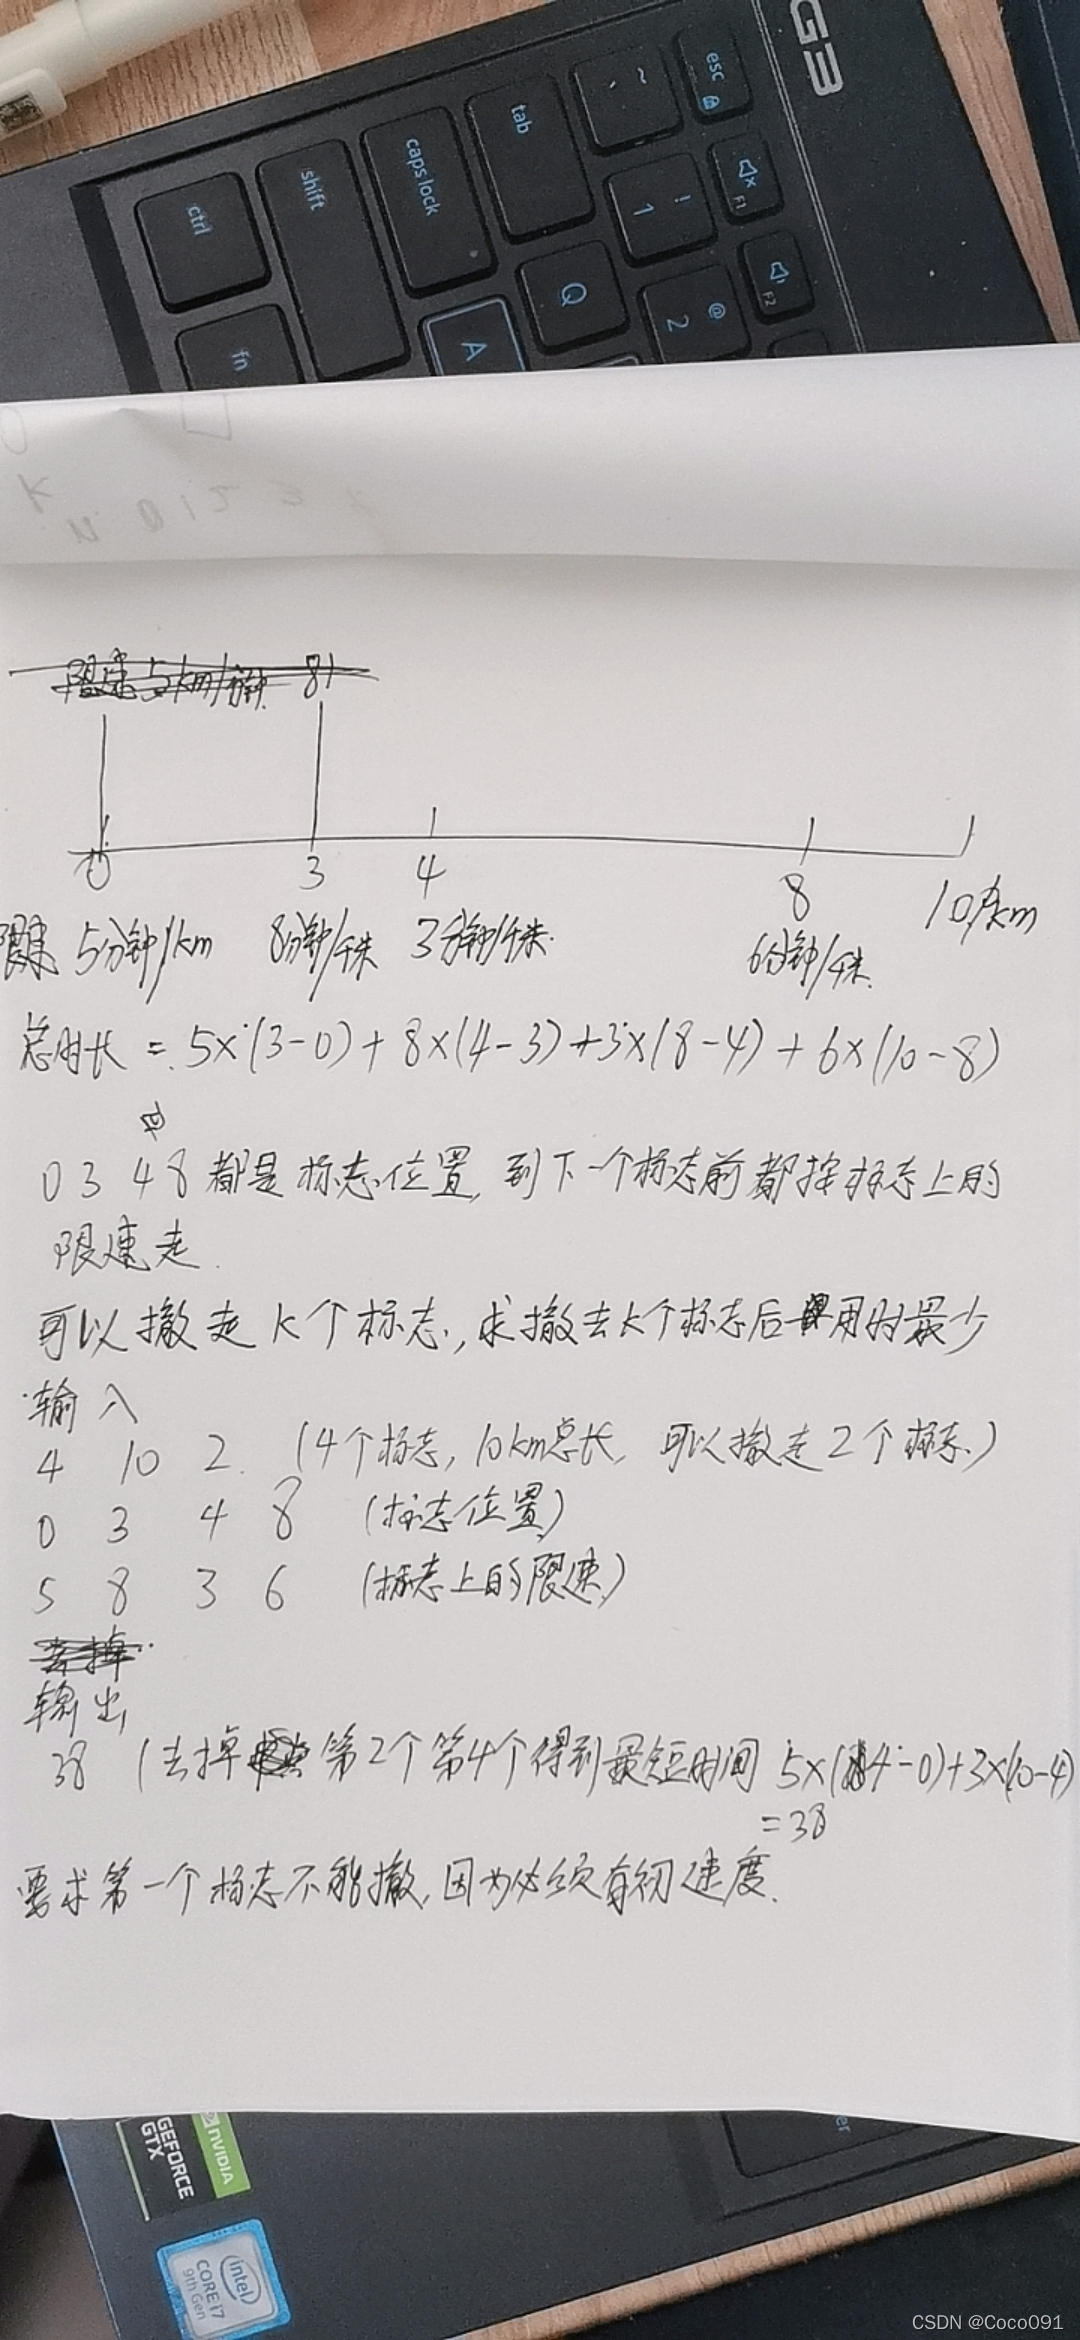 G3
esc
~
`
tab
caps lock
shift
ctrl
fn
!
1
F1
@
2
F2
Q
A
K
限速 5km/分钟 8
0 3 4 8 10/km
限速 5分钟/km 8分钟/千米 3分钟/千米 6分钟/千米
总时长 = 5×(3-0)+8×(4-3)+3×(8-4)+6×(10-8)
0 3 4 8 都是标志位置, 到下一个标志前都按标志上的
限速走.
可以撤走 K个标志, 求撤去K个标志后用时最少
输入
4 10 2 (4个标志, 10km总长, 可以撤走2个标志)
0 3 4 8 (标志位置)
5 8 3 6 (标志上的限速)
去掉
输出
38 (去掉 第2个第4个得到最短时间 5×(4-0)+3×(10-4)
=38
要求第一个标志不能撤, 因为必须有初速度.
er
NVIDIA
GEFORCE
GTX
intel
CORE i7
9th Gen
CSDN @Coco091